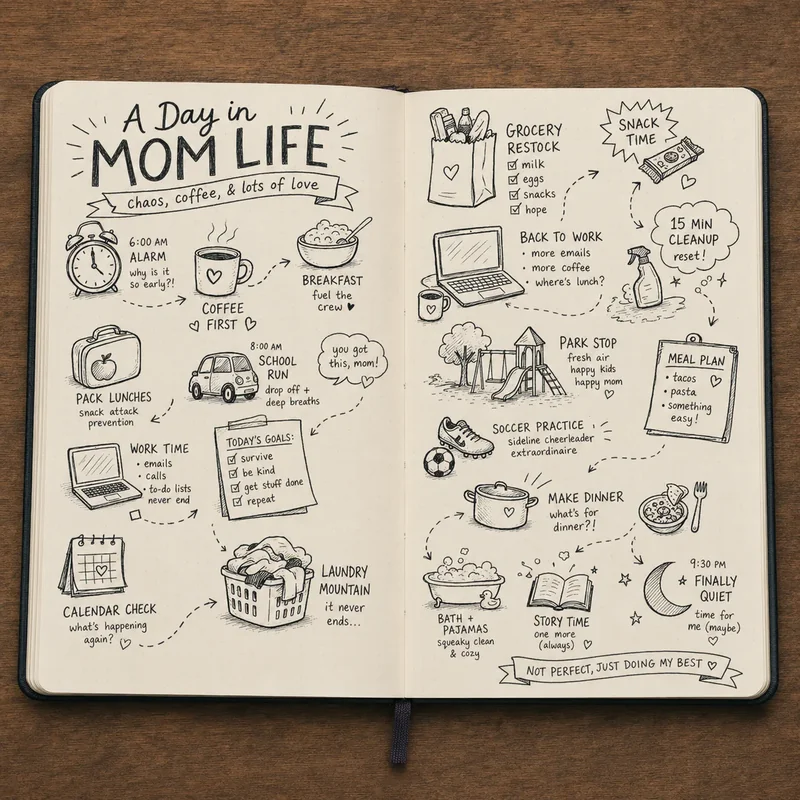 A Day in
MOM LIFE
chaos, coffee, & lots of love
6:00 AM
ALARM
why is it
so early?!
COFFEE
FIRST
BREAKFAST
fuel the
crew
PACK LUNCHES
snack attack
prevention
8:00 AM
SCHOOL
RUN
drop off +
deep breaths
you got
this, mom!
WORK TIME
• emails
• calls
• to-do lists
never end
TODAY'S GOALS:
survive
be kind
get stuff done
repeat
CALENDAR CHECK
what's happening
again?
LAUNDRY
MOUNTAIN
it never
ends...
GROCERY
RESTOCK
milk
eggs
snacks
hope
SNACK
TIME
BACK TO WORK
• more emails
• more coffee
• where's lunch?
15 MIN
CLEANUP
reset!
PARK STOP
fresh air
happy kids
happy mom
MEAL PLAN
• tacos
• pasta
• something
easy!
SOCCER PRACTICE
sideline cheerleader
extraordinaire
MAKE DINNER
what's for
dinner?!
BATH +
PAJAMAS
squeaky clean
& cozy
STORY TIME
one more
(always)
9:30 PM
FINALLY
QUIET
time for
me (maybe)
NOT PERFECT, JUST DOING MY BEST